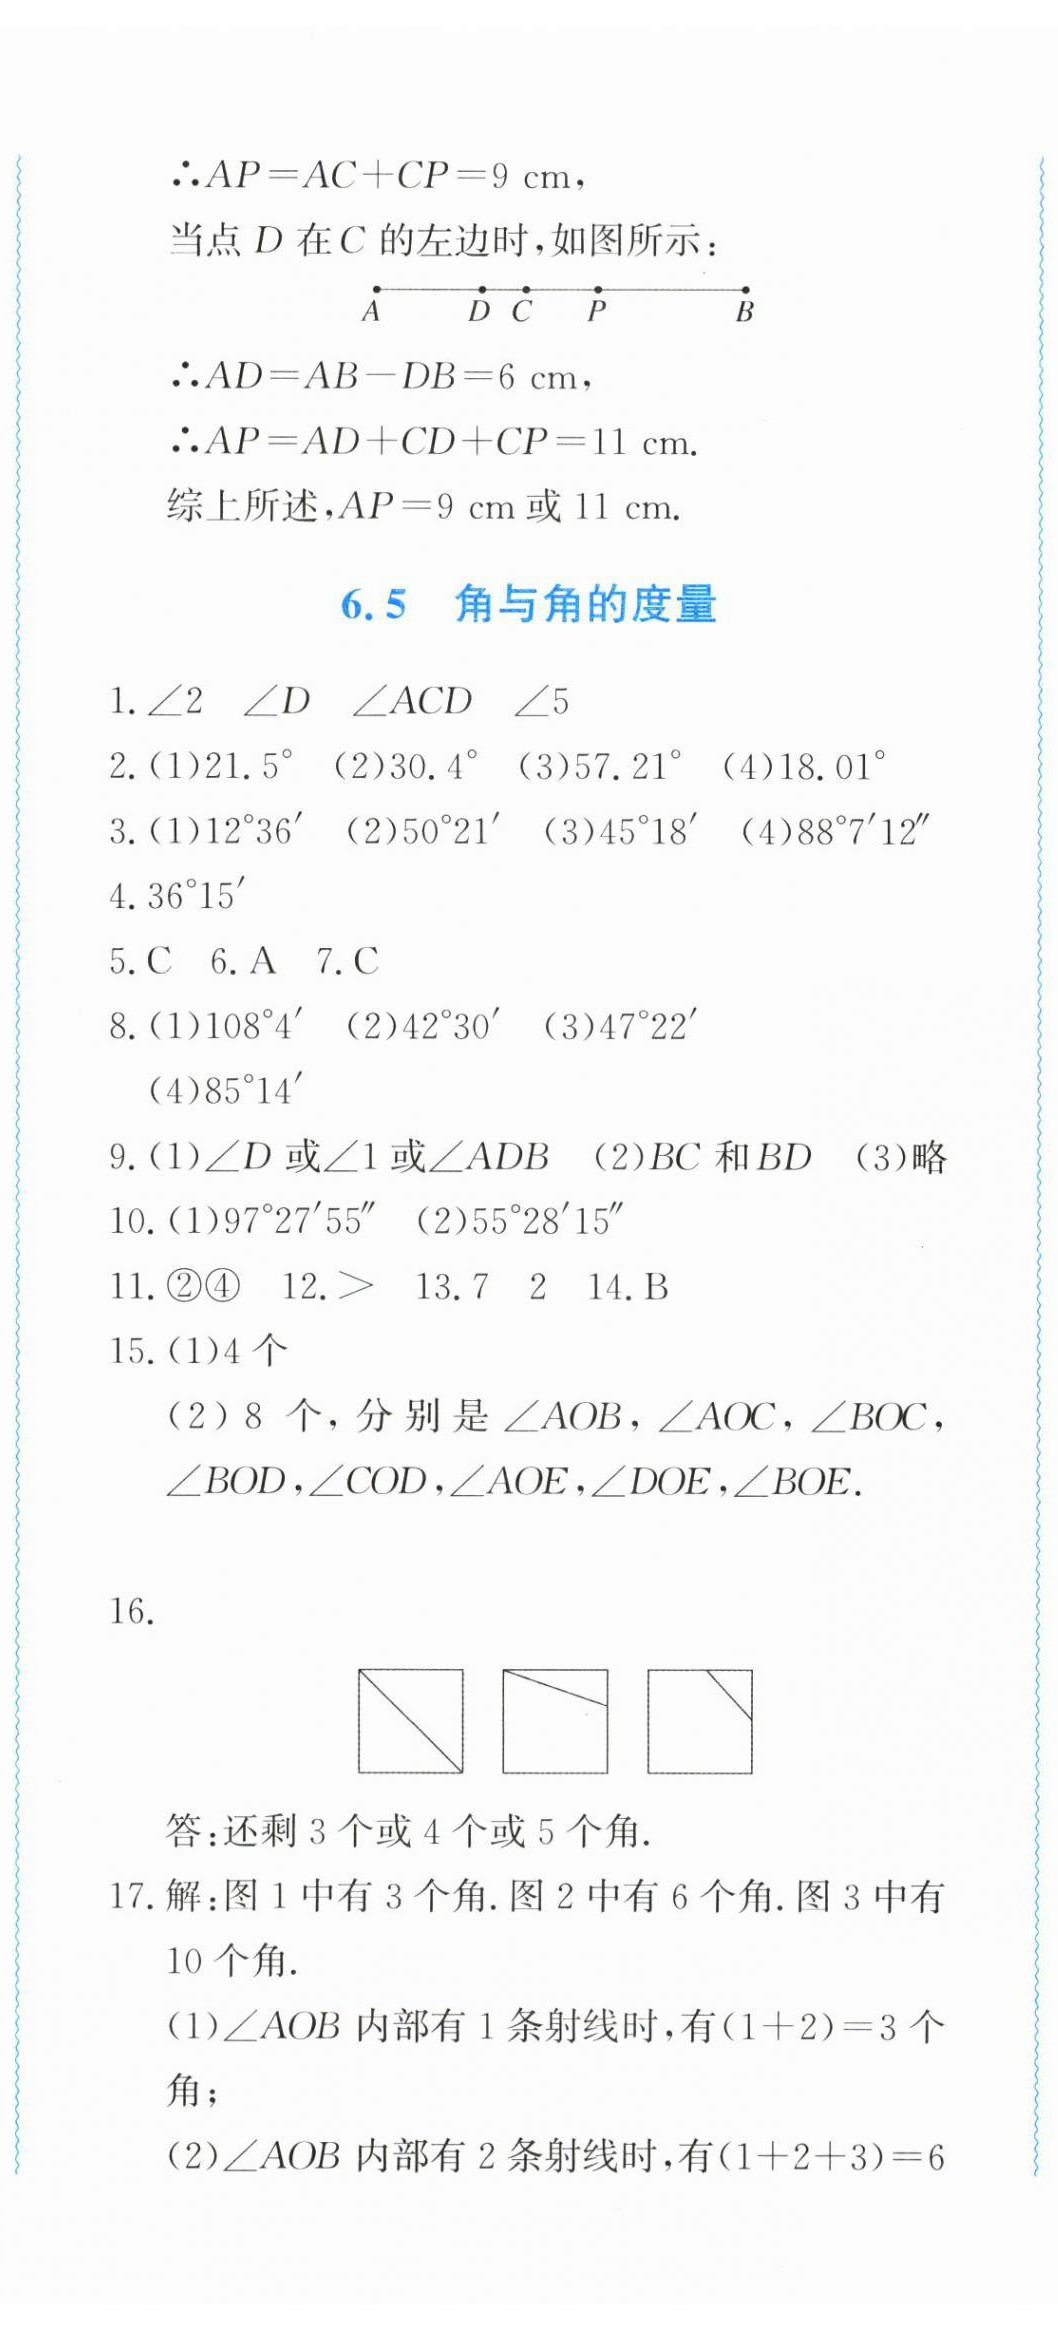 ∴AP=AC+CP=9 cm,
当点 D 在 C 的左边时,如图所示:
A D C P B
∴AD=AB−DB=6 cm,
∴AP=AD+CD+CP=11 cm.
综上所述,AP=9 cm 或 11 cm.
6.5 角与角的度量
1. ∠2 ∠D ∠ACD ∠5
2. (1)21.5° (2)30.4° (3)57.21° (4)18.01°
3. (1)12°36′ (2)50°21′ (3)45°18′ (4)88°7′12″
4. 36°15′
5. C 6. A 7. C
8. (1)108°4′ (2)42°30′ (3)47°22′
(4)85°14′
9. (1)∠D 或∠1 或∠ADB (2)BC 和 BD (3)略
10. (1)97°27′55″ (2)55°28′15″
11. ②④ 12. > 13. 7 2 14. B
15. (1)4 个
(2) 8 个, 分别是∠AOB, ∠AOC, ∠BOC,
∠BOD,∠COD,∠AOE,∠DOE,∠BOE.
16.
答:还剩 3 个或 4 个或 5 个角.
17. 解:图 1 中有 3 个角. 图 2 中有 6 个角. 图 3 中有
10 个角.
(1)∠AOB 内部有 1 条射线时,有(1+2)=3 个
角;
(2)∠AOB 内部有 2 条射线时,有(1+2+3)=6